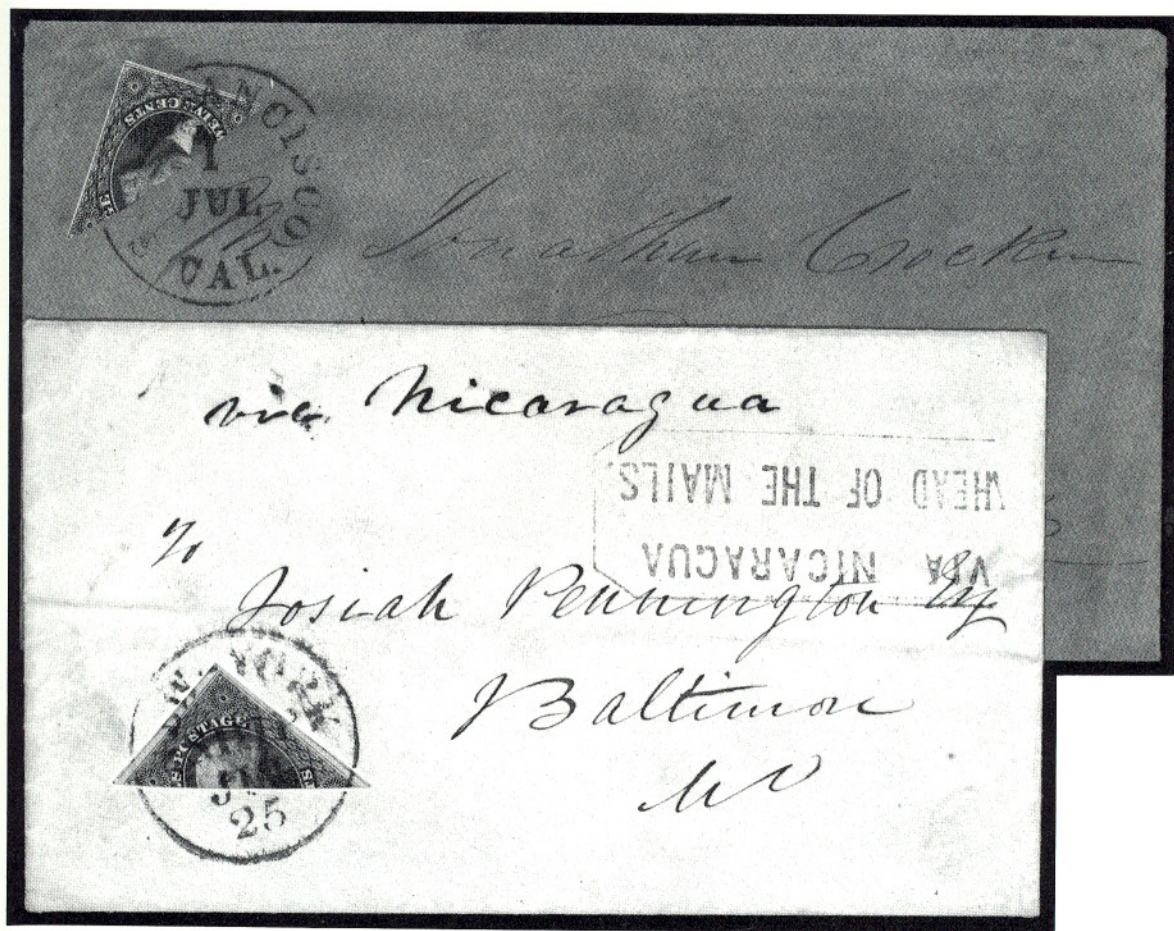 ANCISCO
1
JUL
CAL.
ELVE CENTS
Jonathan Crocker
via Nicaragua
VIA NICARAGUA
AHEAD OF THE MAILS.
To
Josiah Pennington Esq
Baltimore
Md
NEW YORK
25
S POSTAGE